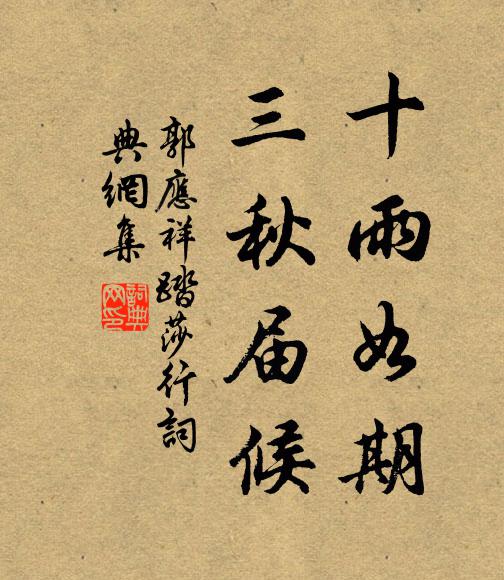 十雨如期
三秋届候
郭應祥踏莎行詞
典網集
詞典
网印